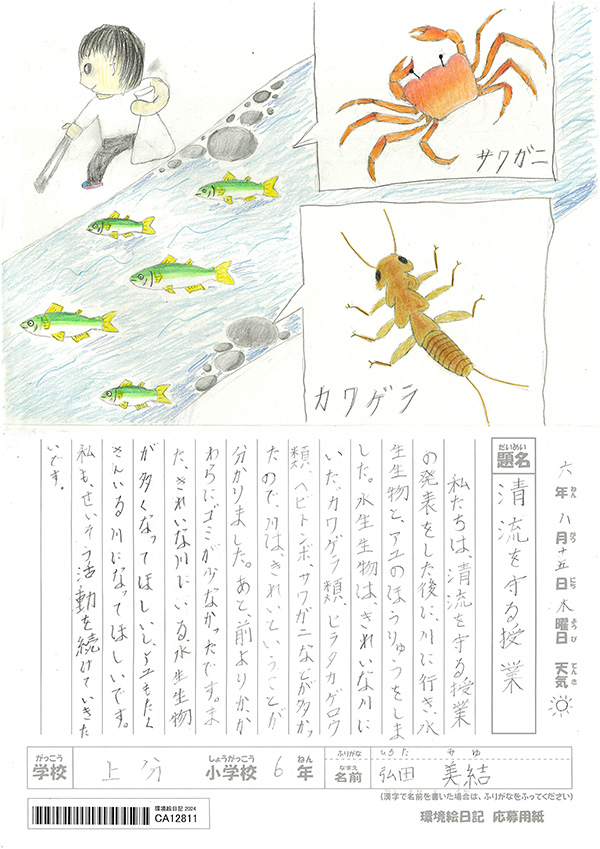 サワガニ
カワゲラ
六年 八月十五日 木曜日 天気
ねん がつ にち ようび てんき
だいめい
題名
清流を守る授業
私たちは、清流を守る授業
の発表をした後に、川に行き、水
生生物と、アユのほうりゅうをしま
した。水生生物は、きれいな川に
いた、カワゲラ類、ヒラタカゲロウ
類、ヘビトンボ、サワガニなどが多かっ
たので、川は、きれいということが
分かりました。あと、前よりか、か
わらにゴミが少なかったです。ま
た、きれいな川にいる、水生生物
が多くなってほしいし、アユもたく
さんいる川になってほしいです。
私も、せいそう活動を続けていきた
いです。
がっこう
学校
上分
しょうがっこう
小学校
6
ねん
年
ふりがな
ひろた みゆ
なまえ
名前
弘田 美結
(漢字で名前を書いた場合は、ふりがなをふってください)
環境絵日記 2024
CA12811
環境絵日記 応募用紙